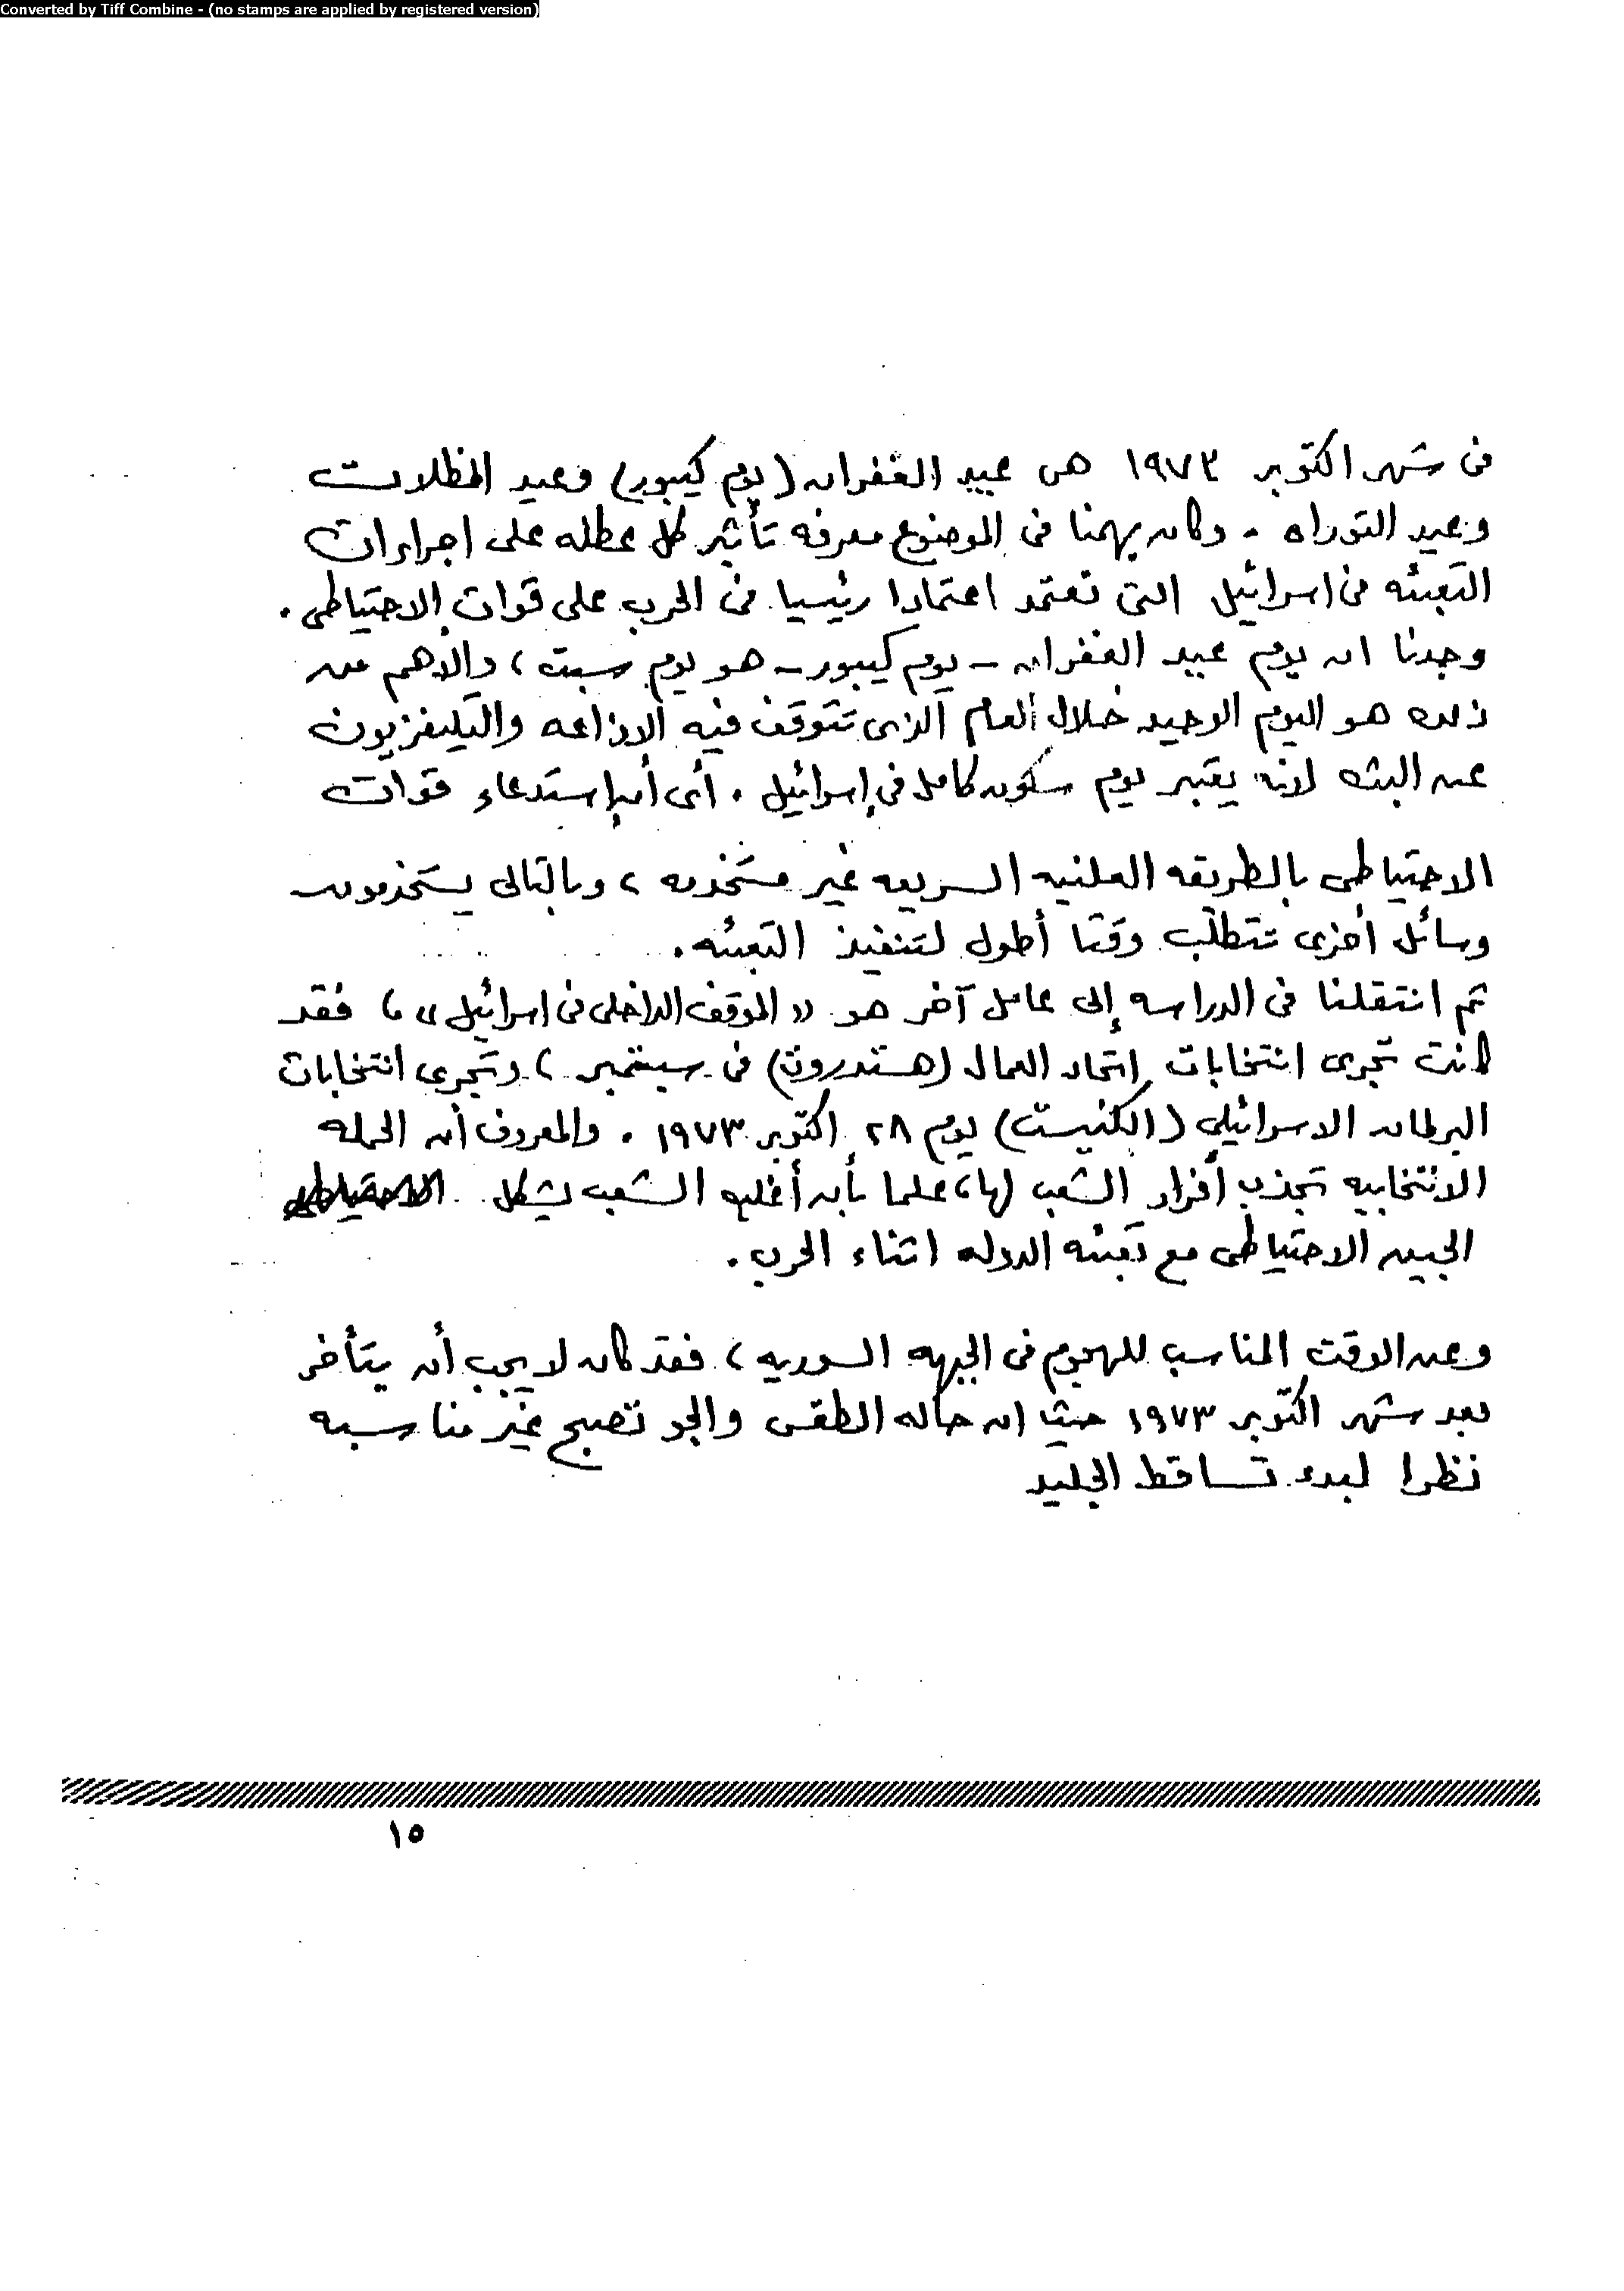 Converted by Tiff Combine - (no stamps are applied by registered version)
فى شهر اكتوبر ١٩٧٣ هى عيد الغفران (يوم كيبور) وعيد المظلات
وعيد التوراه . وكان يهمنا فى الموضوع معرفه تأثير كل عطله على اجراءات
التعبئه فى اسرائيل التى تعتمد اعتمادا رئيسيا فى الحرب على قوات الاحتياطى .
وجدنا ان يوم عيد الغفران – يوم كيبور – هو يوم سبت ، والاهم من
ذلك هو اليوم الوحيد خلال العام الذى تتوقف فيه الاذاعه والتليفزيون
عن البث لانه يعتبر يوم سكون كامل فى إسرائيل . أى أن إستدعاء قوات
الاحتياطى بالطريقه العلنيه السريعه غير مستخدمه ، وبالتالى يستخدمون
وسائل أخرى تتطلب وقتا أطول لتنفيذ التعبئه .
ثم انتقلنا فى الدراسه إلى عامل آخر هو « الموقف الداخلى فى اسرائيل » ، فقد
كانت تجرى انتخابات إتحاد العمال (هستدروت) فى سبتمبر ، وتجرى انتخابات
البرلمان الاسرائيلي (الكنيست) يوم ٢٨ اكتوبر ١٩٧٣ . والمعروف أن الحمله
الانتخابيه تجذب أفراد الشعب لها ، علما بأن أغلب الشعب يشكل الاحتياطى
الجيش الاحتياطى مع تعبئه الدوله اثناء الحرب .
وعن الوقت المناسب للهجوم فى الجبهه السوريه ، فقد كان لا يجب أن يتأخر
بعد شهر اكتوبر ١٩٧٣ حيث ان حاله الطقس والجو تصبح غير مناسبه
نظرا لبدء تساقط الجليد
١٥